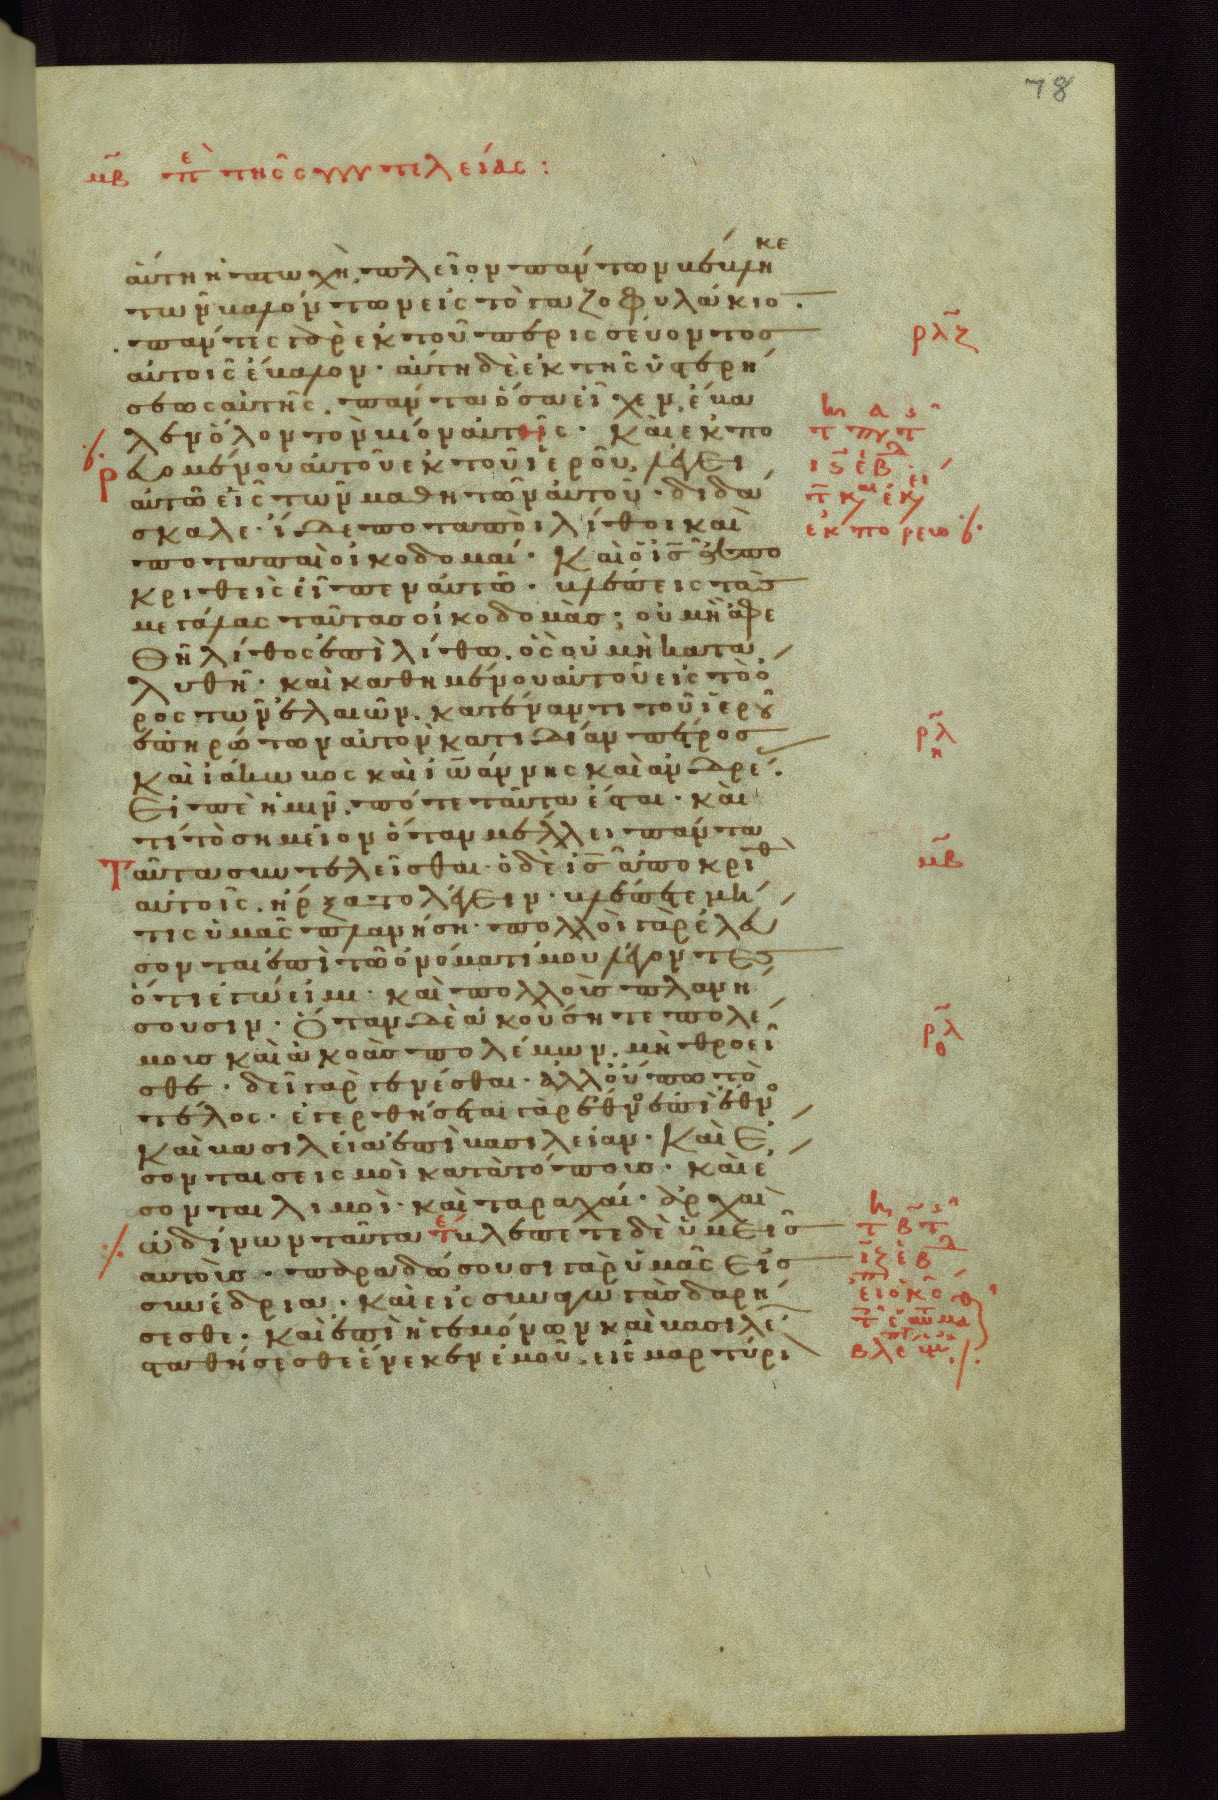 78
μβ περὶ τῆς συντελείας :
αὕτη ἡ πτωχὴ, πλεῖον πάντων βέβλη κε
τῶν βαλόντων εἰς τὸ γαζοφυλάκιο.
πάντες γὰρ ἐκ τοῦ περισσεύοντος
αὐτοῖς ἔβαλον· αὕτη δὲ ἐκ τῆς ὑστερή
σεως αὐτῆς, πάντα ὅσα εἶχεν, ἔβα
λεν ὅλον τὸν βίον αὐτῆς· Καὶ ἐκπο
ρευομένου αὐτοῦ ἐκ τοῦ ἱεροῦ, λέγει
αὐτῶ εἷς τῶν μαθητῶν αὐτοῦ· διδά
σκαλε· ἴδε ποταποὶ λίθοι καὶ
ποταπαὶ οἰκοδομαί· Καὶ ὁ ις ἀπο
κριθεὶς εἶπεν αὐτῶ· βλέπεις τὰς
μεγάλας ταύτας οἰκοδομάς; οὐ μὴ ἀφε
θῆ λίθος ἐπὶ λίθω, ὃς οὐ μὴ κατα
λυθῆ· καὶ καθημένου αὐτοῦ εἰς τὸ ὄ
ρος τῶν ἐλαιῶν, κατέναντι τοῦ ἱεροῦ
ἐπηρώτων αὐτὸν κατιδίαν πέτρος
Καὶ ἰάκωβος καὶ ἰωάννης καὶ ἀνδρέ.
Εἰπὲ ἡμῖν, πότε ταῦτα ἔσται· καὶ
τί τὸ σημεῖον ὅταν μέλλει πάντα
Ταῦτα συντελεῖσθαι· ὁ δὲ ις ἀποκριθ
αὐτοῖς, ἤρξατο λέγειν· βλέπετε μή
τις ὑμᾶς πλανήση· πολλοὶ γὰρ ἐλεύ
σονται ἐπὶ τῶ ὀνόματί μου λέγοντες
ὅτι ἐγώ εἰμι· καὶ πολλοὺς πλανή
σουσιν· Ὅταν δὲ ἀκούσητε πολέ
μους καὶ ἀκοὰς πολέμων, μὴ θροεῖ
σθε· δεῖ γὰρ γενέσθαι· ἀλλ' οὔπω τὸ
τέλος· ἐγερθήσεται γὰρ ἔθνος ἐπὶ ἔθνος
Καὶ βασιλεία ἐπὶ βασιλείαν· Καὶ ἔ
σονται σεισμοὶ κατὰ τόπους· καὶ ἔ
σονται λιμοὶ· καὶ ταραχαί· ἀρχαὶ
ὠδίνων ταῦτα βλέπετε δὲ ὑμεῖς
αὐτοὺς· παραδώσουσι γὰρ ὑμᾶς εἰς
συνέδρια· καὶ εἰς συναγωγὰς δαρή
σεσθε· Καὶ ἐπὶ ἡγεμόνων καὶ βασιλέ
σταθήσεσθε ἕνεκεν ἐμοῦ, εἰς μαρτύρι
ρλζ
ἐκπορευο
ρλη
μβ
ρλθ